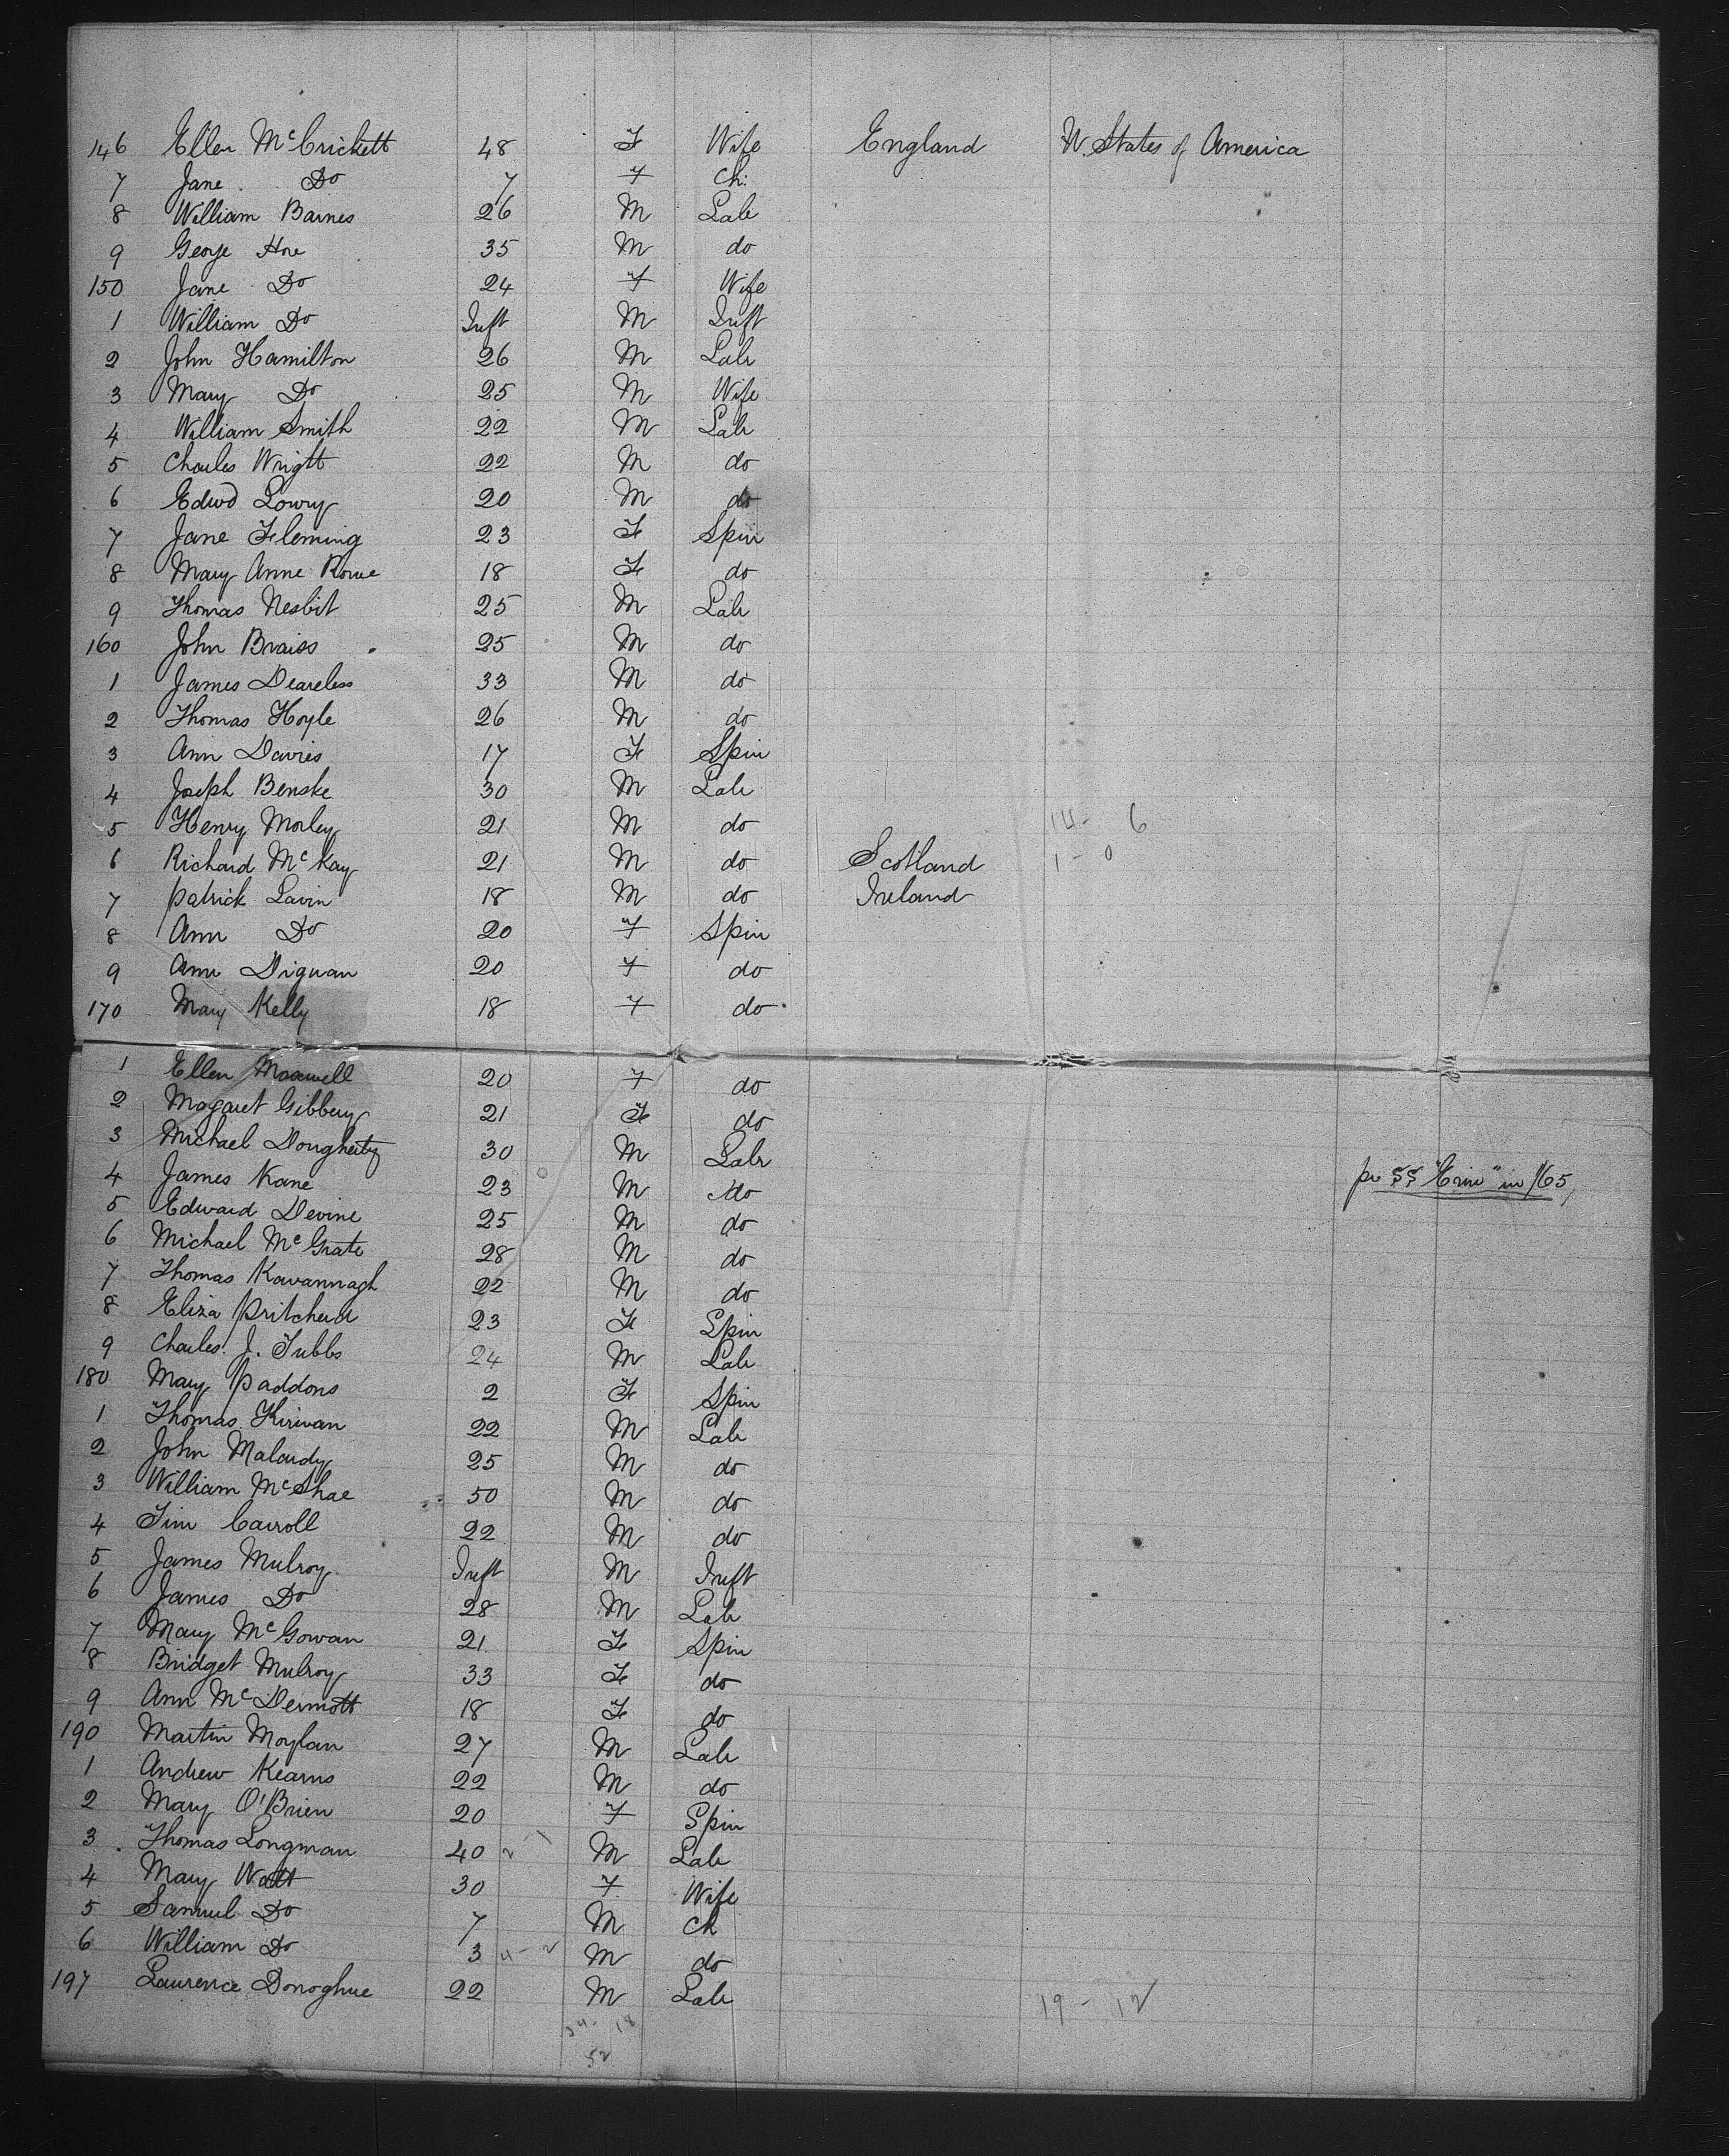 146 Ellen McCrickett 48 F Wife England U. States of America
7 Jane Do 7 F Ch:
8 William Baines 26 M Labr
9 George Hoe 35 M do
150 Jane Do 24 F Wife
1 William Do Inft M Inft
2 John Hamilton 26 M Labr
3 Mary Do 25 M Wife
4 William Smith 22 M Labr
5 Charles Wright 22 M do
6 Edwd Lowry 20 M do
7 Jane Fleming 23 F Spin
8 Mary Anne Rowe 18 F do
9 Thomas Nesbit 25 M Labr
160 John Braiss 25 M do
1 James Deareless 33 M do
2 Thomas Hoyle 26 M do
3 Ann Davies 17 F Spin
4 Joseph Benske 30 M Labr
5 Henry Morley 21 M do 14 - 6
6 Richard McKay 21 M do Scotland 1 - 0
7 Patrick Lavin 18 M do Ireland
8 Ann Do 20 F Spin
9 Ann Dignan 20 F do
170 Mary Kelly 18 F do
1 Ellen Maxwell 20 F do
2 Magaret Gibbery 21 F do
3 Michael Dougherty 30 M Labr
4 James Kane 23 M do pr SS "Erin" in /65,
5 Edward Devine 25 M do
6 Michael McGrate 28 M do
7 Thomas Kavannagh 22 M do
8 Eliza Pritchard 23 F Spin
9 Charles J. Tubbs 24 M Labr
180 Mary Paddons 2 F Spin
1 Thomas Kirivan 22 M Labr
2 John Malardy 25 M do
3 William McShae 50 M do
4 Tim Carroll 22 M do
5 James Mulroy Inft M Inft
6 James Do 28 M Labr
7 Mary McGowan 21 F Spin
8 Bridget Mulroy 33 F do
9 Ann McDermott 18 F do
190 Martin Moylan 27 M Labr
1 Andrew Kearns 22 M do
2 Mary O'Brien 20 F Spin
3 Thomas Longman 40 M Labr
4 Mary Watt 30 F Wife
5 Samuel Do 7 M Ch
6 William Do 3 4 - 2 M do
197 Laurence Donoghue 22 M Labr 19 - 12
34 - 18
52